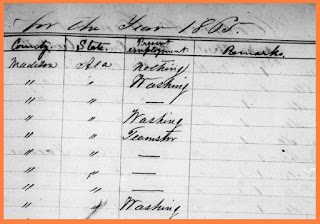 for the Year 1865.
County. State. Present employment Remarks.
Madison Ala Nothing
" " Washing
" " —
" " Washing
" " Teamster
" " —
" " —
" " —
" " Washing